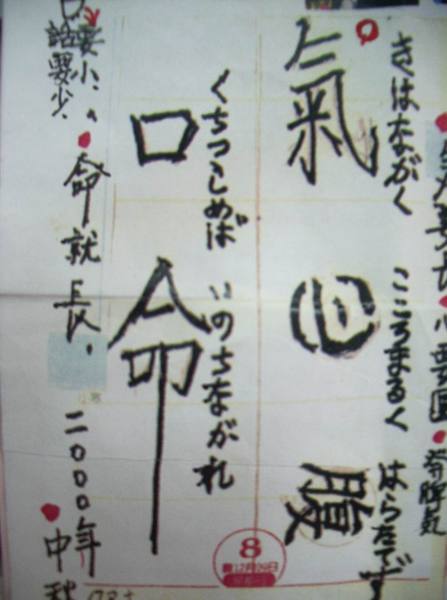 要長 心要圓
きはながく こころまるく はらたでず
氣 心 腹
くちつつしめば いのちながれ
口 命
口要小、
話要少.
命就長. 二〇〇〇年 中秋
8